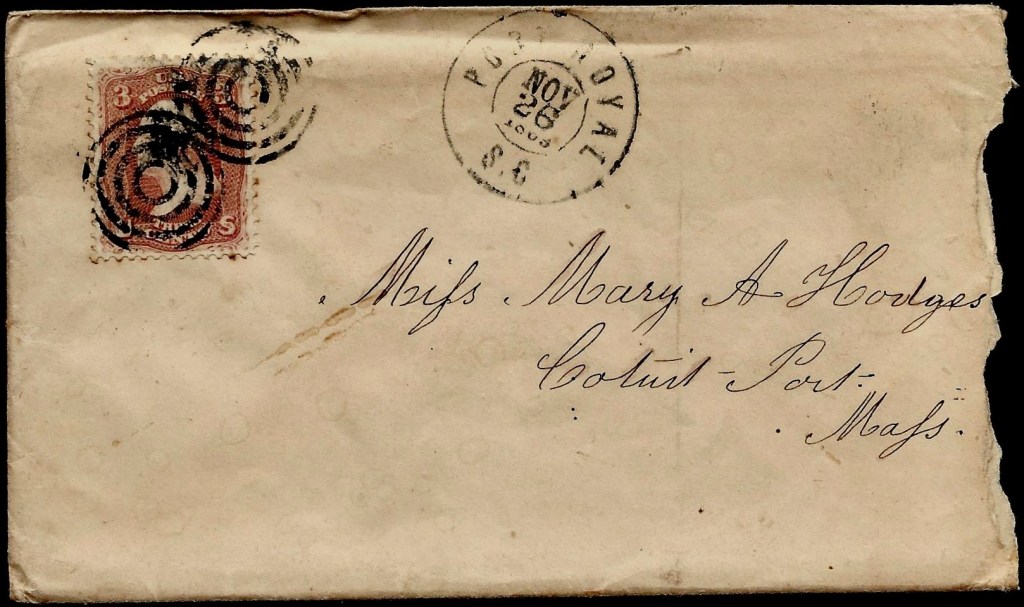 3
U
POSTA
S
PORT ROYAL
NOV
26
S.C
Miſs Mary A Hodges
Cotuit - Port.
Maſs.